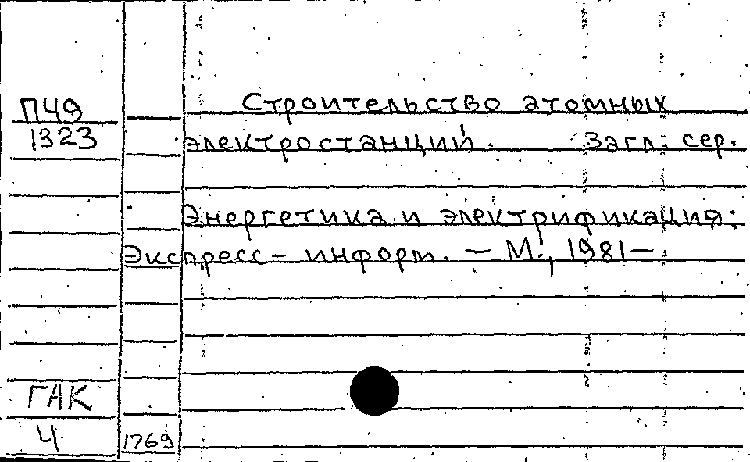 П49
1323
Строительство атомных
электростанций. Загл. сер.
Энергетика и электрификация:
Экспресс-информ. – М., 1981–
ГАК
4
1769